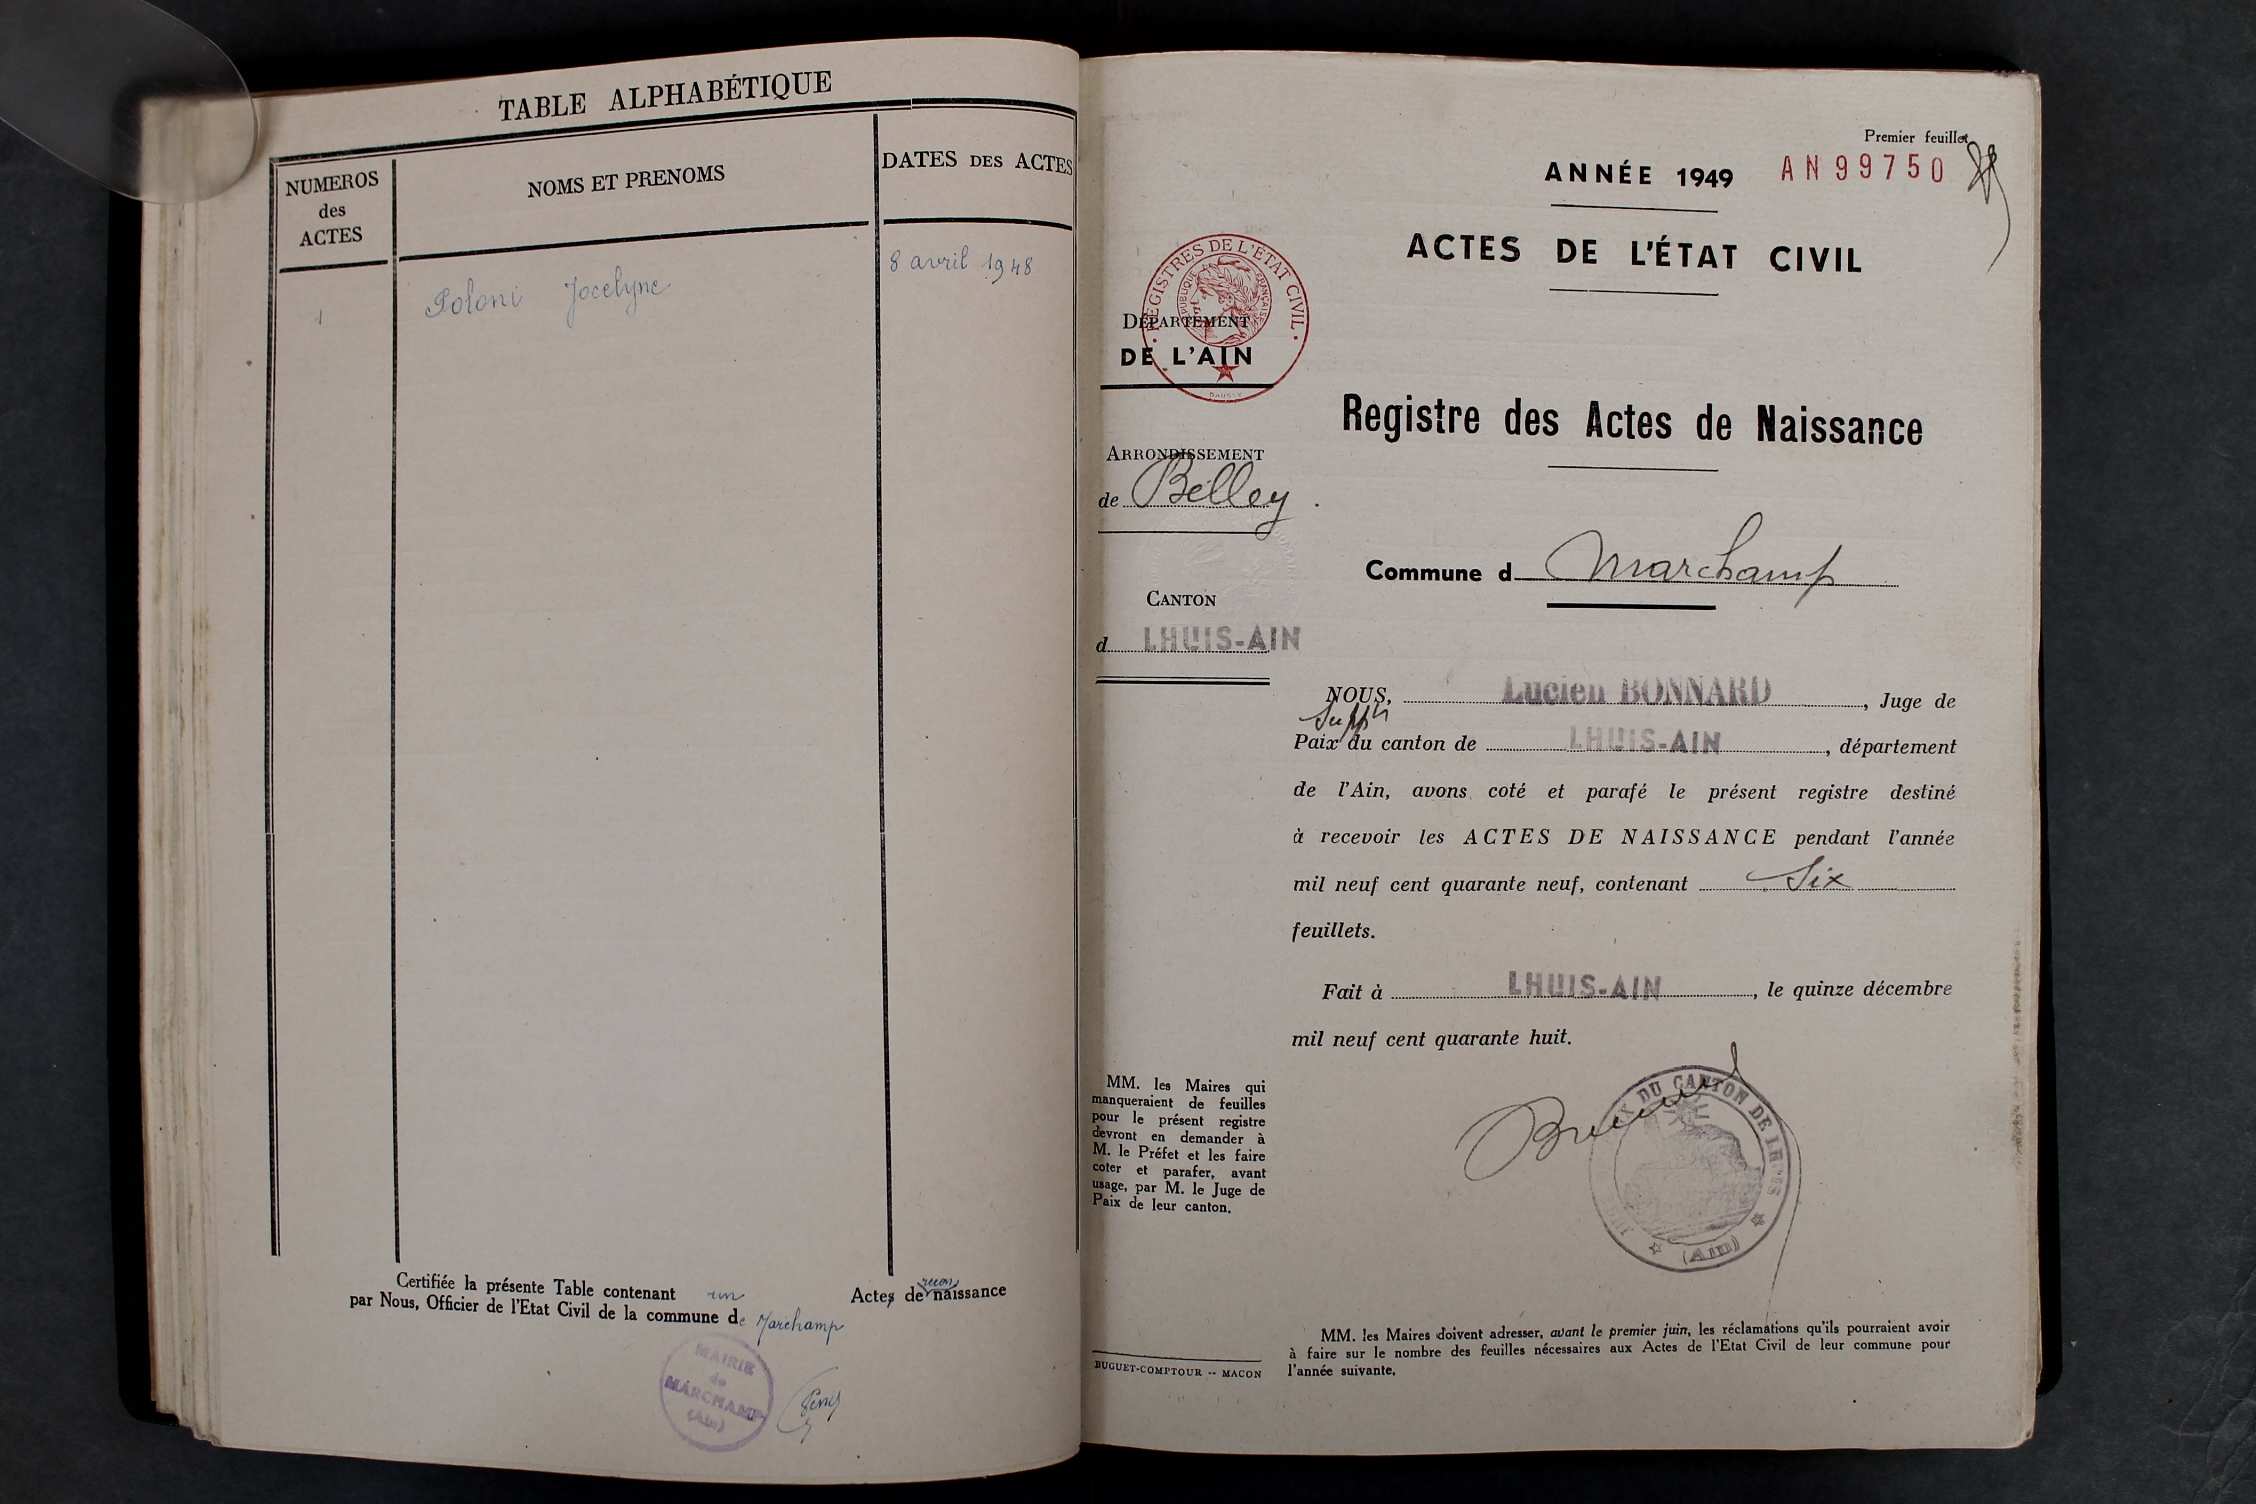 TABLE ALPHABÉTIQUE
NUMEROS
des
ACTES
NOMS ET PRENOMS
DATES DES ACTES
1
Poloni Jocelyne
8 avril 1948
Certifiée la présente Table contenant un Actes de recon naissance
par Nous, Officier de l'Etat Civil de la commune de Marchamp
MAIRIE
de
MARCHAMP
(Ain)
Premier feuillet
ANNÉE 1949
AN99750
ACTES DE L'ÉTAT CIVIL
REGISTRES DE L'ÉTAT CIVIL
RÉPUBLIQUE FRANÇAISE
DAUSSY
DÉPARTEMENT
DE L'AIN
Registre des Actes de Naissance
ARRONDISSEMENT
de Belley
Commune d Marchamp
CANTON
d LHUIS-AIN
NOUS, Lucien BONNARD, Juge de
Supp
Paix du canton de LHUIS-AIN, département
de l'Ain, avons coté et parafé le présent registre destiné
à recevoir les ACTES DE NAISSANCE pendant l'année
mil neuf cent quarante neuf, contenant Six
feuillets.
Fait à LHUIS-AIN, le quinze décembre
mil neuf cent quarante huit.
DU CANTON DE LHUIS
(Ain)
MM. les Maires qui
manqueraient de feuilles
pour le présent registre
devront en demander à
M. le Préfet et les faire
coter et parafer, avant
usage, par M. le Juge de
Paix de leur canton.
BUGUET-COMPTOUR -- MACON
MM. les Maires doivent adresser, avant le premier juin, les réclamations qu'ils pourraient avoir
à faire sur le nombre des feuilles nécessaires aux Actes de l'Etat Civil de leur commune pour
l'année suivante.